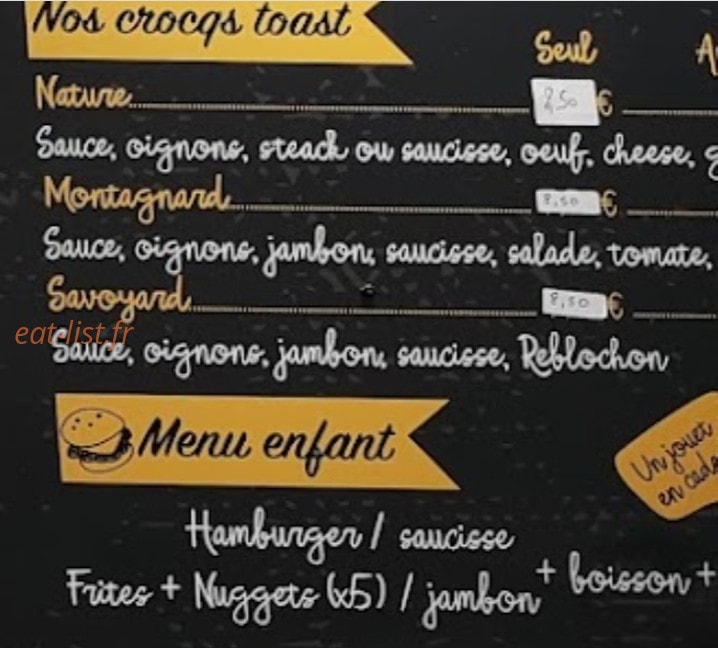 Nos crocqs toast
Seul
Nature 8,50 €
Sauce, oignons, steack ou saucisse, oeuf, cheese,
Montagnard 8,50 €
Sauce, oignons, jambon, saucisse, salade, tomate,
Savoyard 8,50 €
eat-list.fr
Sauce, oignons, jambon, saucisse, Reblochon
Menu enfant
Un jouet
en
Hamburger / saucisse
Frites + Nuggets (x5) / jambon + boisson +